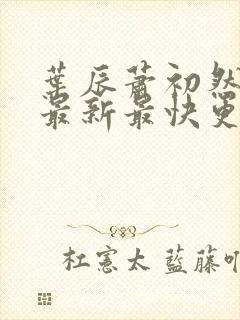 葉辰蕭初然
最新最快更
杜憲太 藍藤